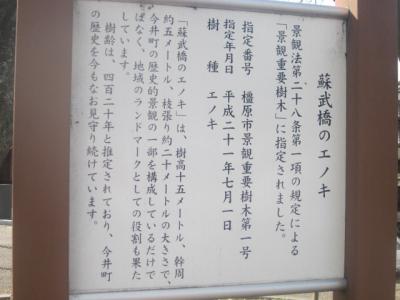 蘇武橋のエノキ
景観法第二十八条第一項の規定による
「景観重要樹木」に指定されました。
指定番号 橿原市景観重要樹木第一号
指定年月日 平成二十一年七月一日
樹種 エノキ
「蘇武橋のエノキ」は、樹高十五メートル、幹周
約五メートル、枝張り約二十メートルの大きさで、
今井町の歴史的景観の一部を構成しているだけで
はなく、地域のランドマークとしての役割も果た
しています。
樹齢は、四百二十年と推定されており、今井町
の歴史を今もなお見守り続けています。